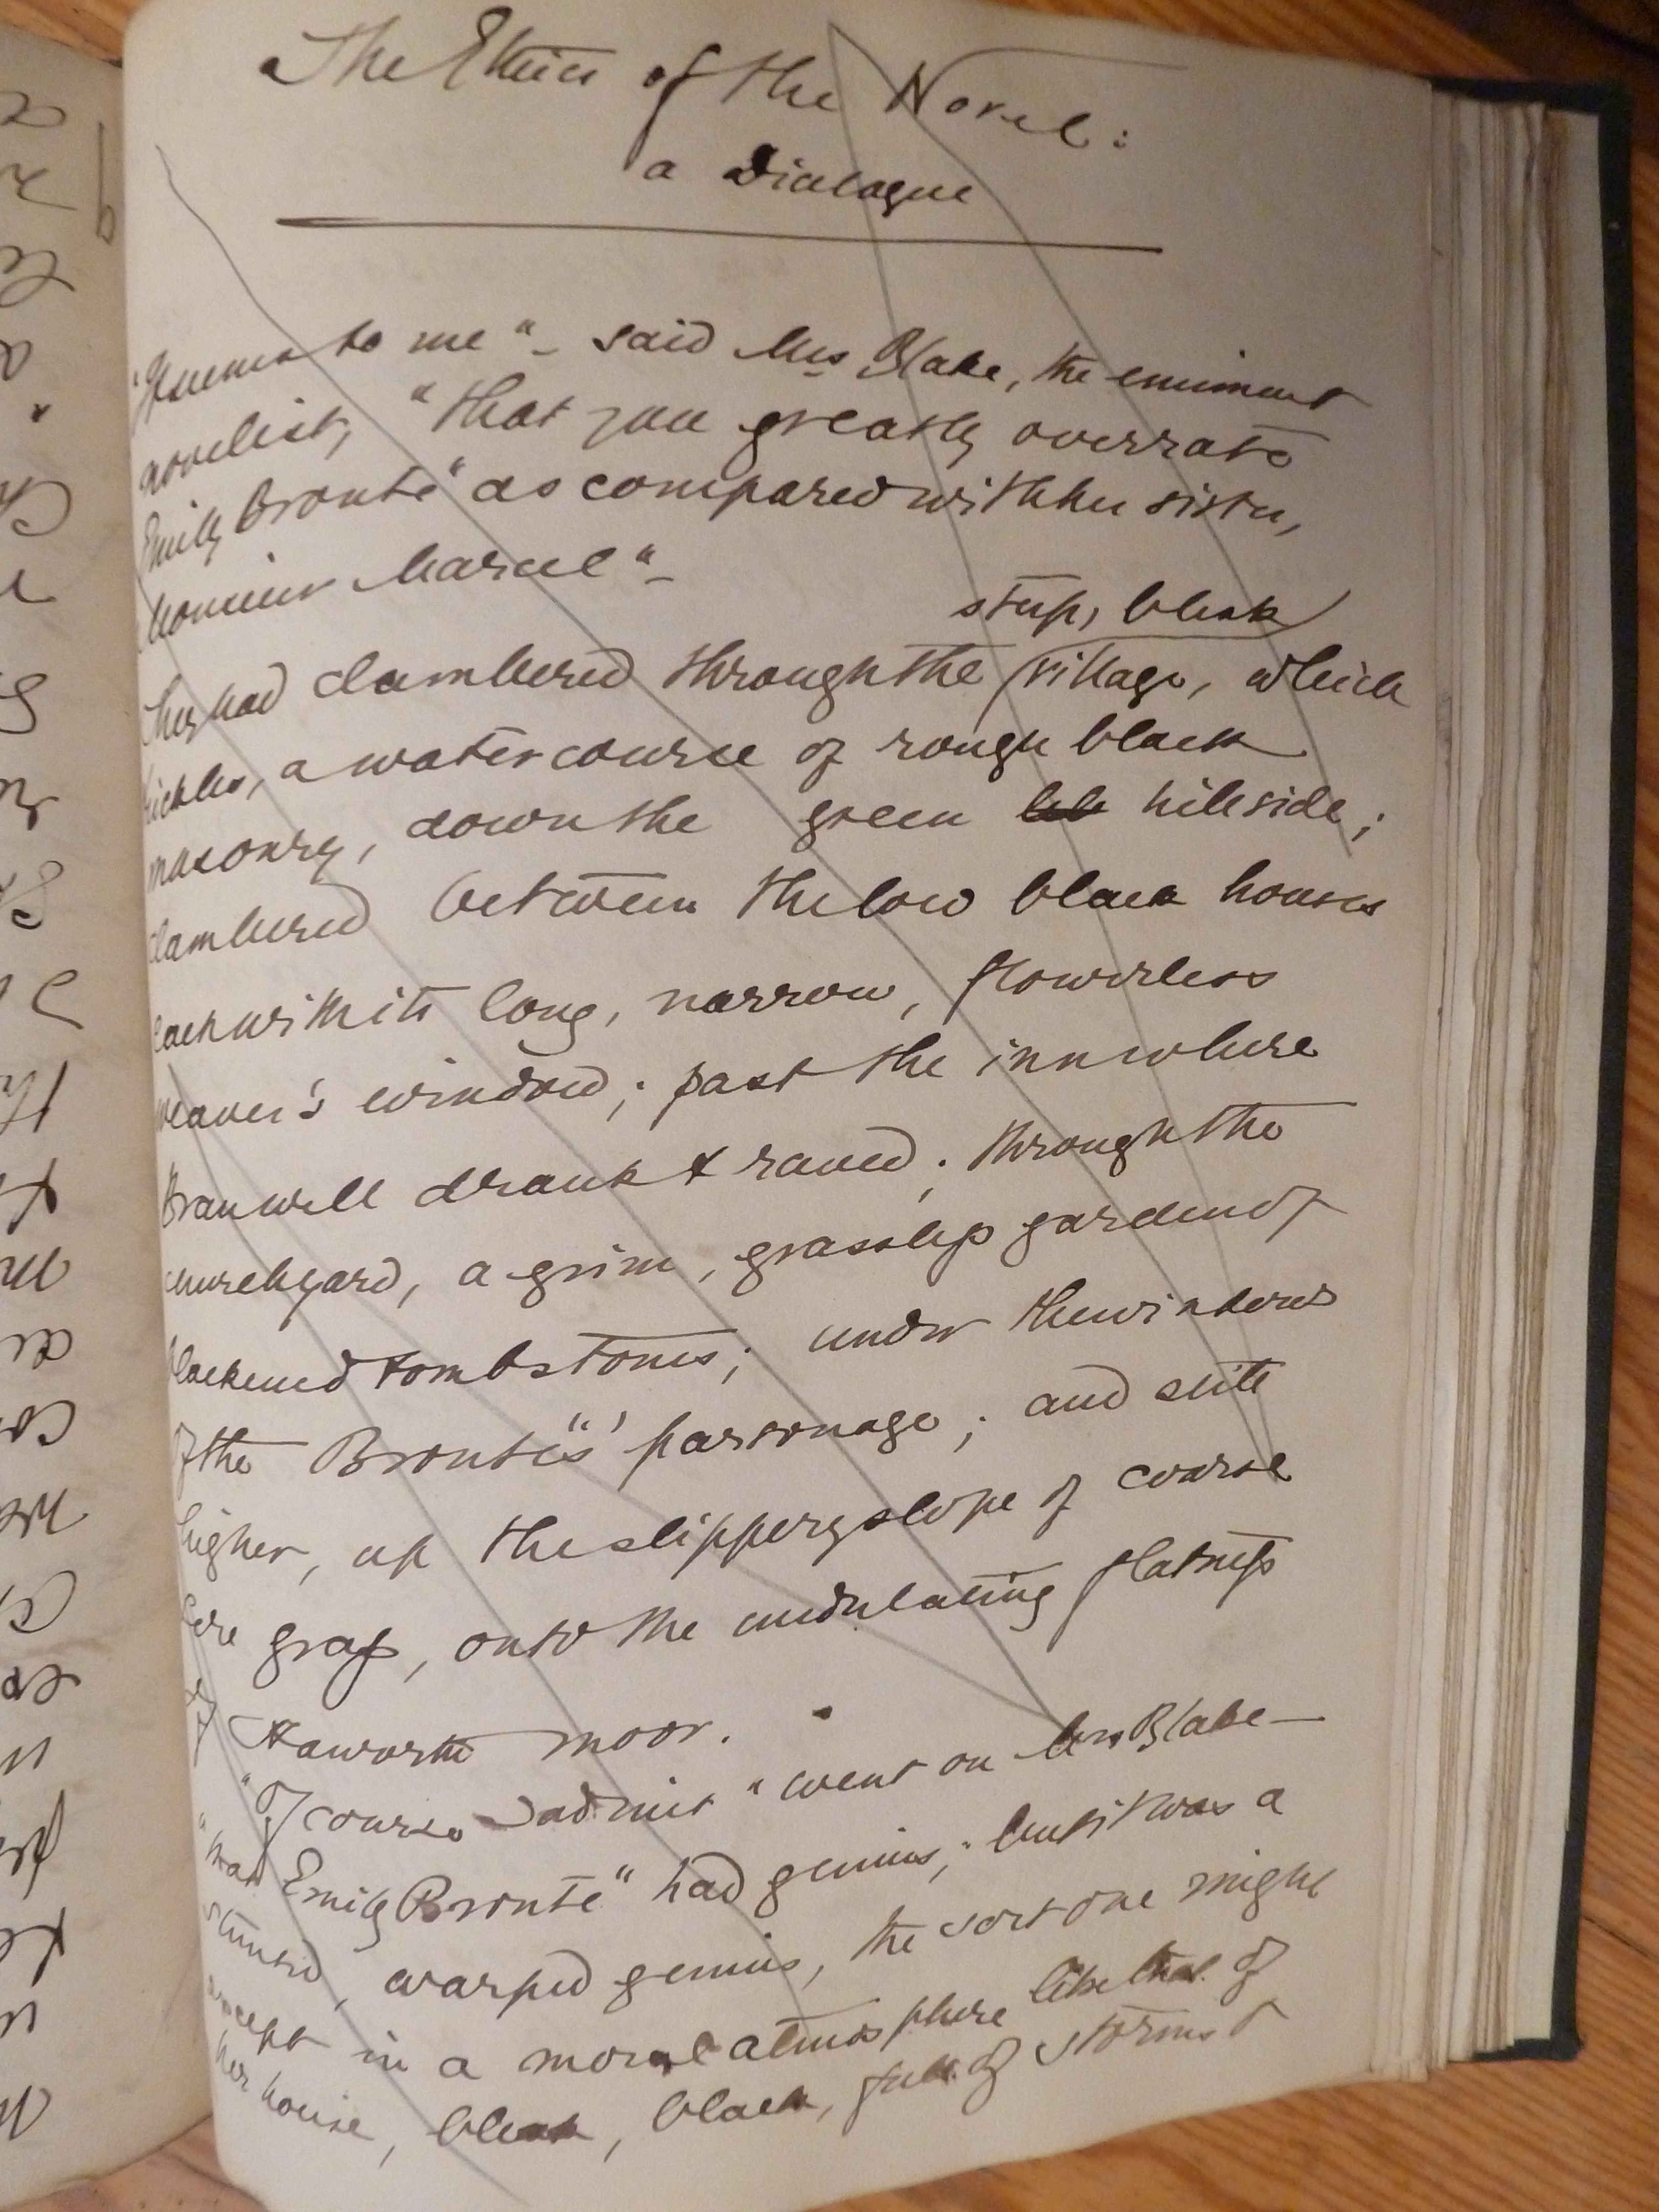 The Ethics of the Novel:
a Dialogue
"It seems to me" – said Mrs Blake, the eminent
novelist, "that you greatly overrate
Emily Brontë as compared with her sister,
Monsieur Marcel" –
steep, bleak
They had clambered through the village, which
trickles, a watercourse of rough black
masonry, down the green hillside;
clambered between the low black houses
each with its long, narrow, flowerless
weaver's window; past the inn where
Branwell drank & raved; through the
churchyard, a grim, grassless garden of
blackened tombstones; under the windows
of the Brontës' parsonage; and still
higher, up the slippery slope of coarse
sere grass, onto the undulating flatness
of Haworth moor.
"Of course I admit" went on Mrs Blake –
"that Emily Brontë had genius; but it was a
stunted, warped genius, the sort one might
except in a moral atmosphere like that of
her house, bleak, black, full of storms &